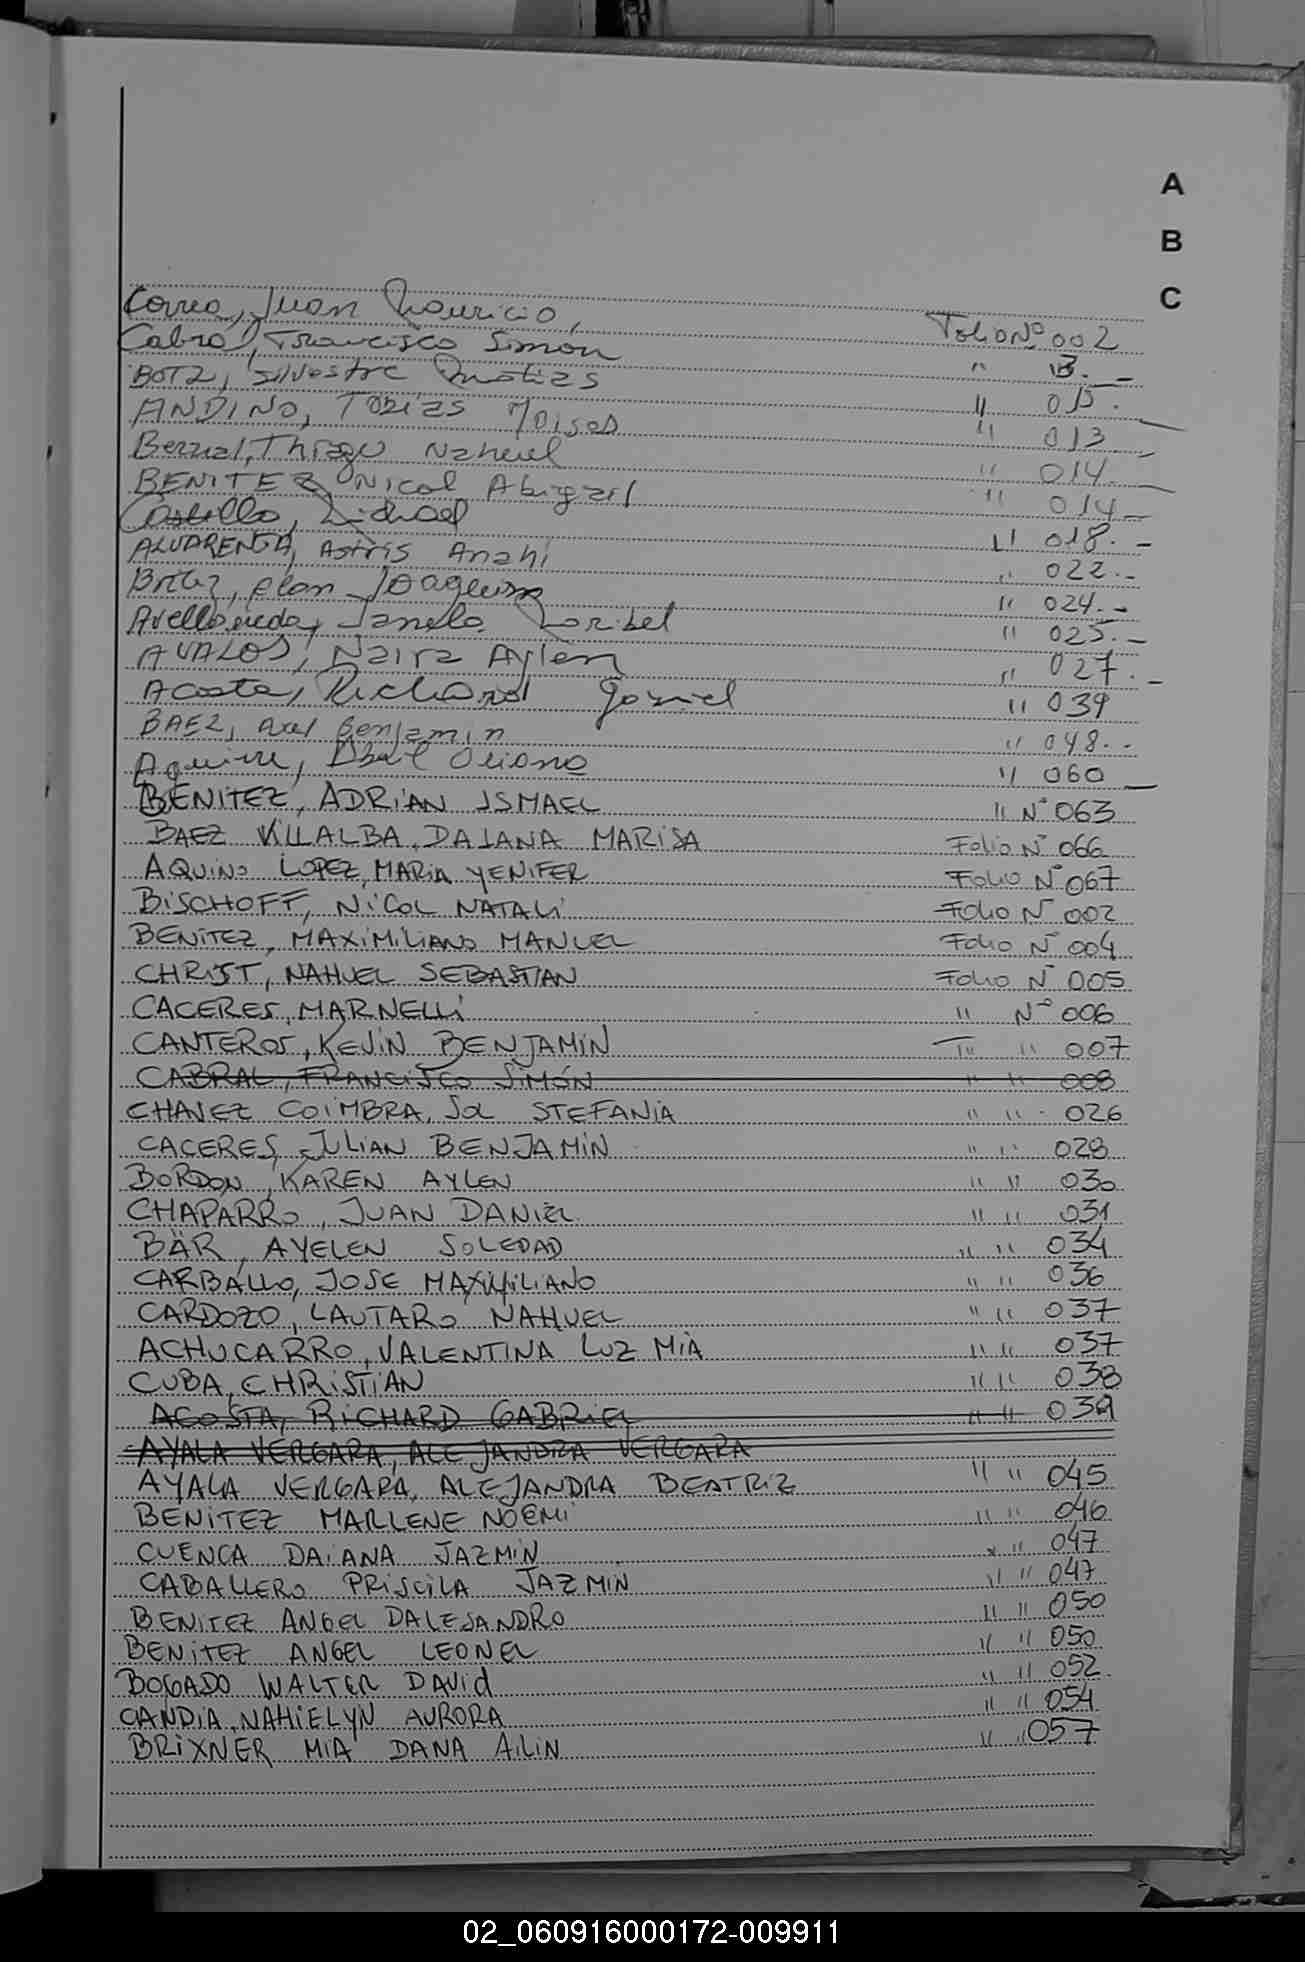 A
B
C
Correa, Juan Mauricio, Folio Nº 002
Cabral, Francisco Simon "
BOTZ, Silvestre Matias " 015.
ANDINO, TOBIAS Moises " 013
Bernal, Thiago Nahuel " 014.
BENITEZ Nicol Abigail " 014
Castillo, Michael " 018.-
ALVARENGA, Astris Anahi " 022.-
Britez, Joaquin " 024.-
Avellaneda, Maribel " 025.-
AVALOS, Naira Aylen " 027.-
Acosta, Richard Gabriel " 039
BAEZ, Axel Benjamin " 048.-
Aguirre, Oriana " 060
BENITEZ, ADRIAN ISMAEL " Nº 063
BAEZ VILLALBA, DAIANA MARISA Folio Nº 066
AQUINO LOPEZ, MARIA YENIFER Folio Nº 067
BISCHOFF, NICOL NATALI Folio Nº 002
BENITEZ, MAXIMILIANO MANUEL Folio Nº 004
CHRIST, NAHUEL SEBASTIAN Folio Nº 005
CACERES, MARNELLI " Nº 006
CANTEROS, KEVIN BENJAMIN " " 007
CABRAL, FRANCISCO SIMÓN " " 008
CHAVEZ COIMBRA, SOL STEFANIA " " 026
CACERES, JULIAN BENJAMIN " " 028
BORDON, KAREN AYLEN " " 030
CHAPARRO, JUAN DANIEL " " 031
BÄR, AYELEN SOLEDAD " " 034
CARBALLO, JOSE MAXIMILIANO " " 036
CARDOZO, LAUTARO NAHUEL " " 037
ACHUCARRO, VALENTINA LUZ MIA " " 037
CUBA, CHRISTIAN " " 038
ACOSTA, RICHARD GABRIEL " " 039
AYALA VERGARA, ALEJANDRA VERGARA
AYALA VERGARA, ALEJANDRA BEATRIZ " " 045
BENITEZ MARLENE NOEMI " " 046
CUENCA DAIANA JAZMIN " " 047
CABALLERO PRISCILA JAZMIN " " 047
BENITEZ ANGEL DALESANDRO " " 050
BENITEZ ANGEL LEONEL " " 050
BOGADO WALTER DAVID " " 052
CANDIA, NAHIELYN AURORA " " 054
BRIXNER MIA DANA AILIN " " 057
02_060916000172-009911